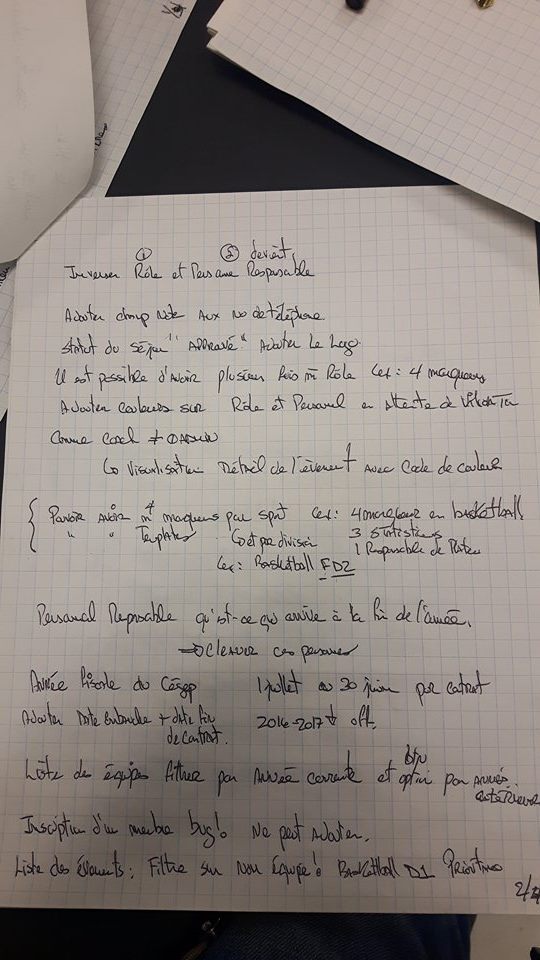 ① ② devient
Inverser Rôle et Personne Responsable
Ajouter champ Note aux no de téléphone
Statut du séjour "APPROUVÉ" Ajouter le Logo.
Il est possible d'avoir plusieurs fois m̄ Rôle (ex: 4 marqueurs
Ajouter couleurs sur Rôle et Personnel en attente de
Comme coach ≠
↳ Visualisation Détail de l'évènement avec Code de couleur
Pouvoir avoir m̄ # marqueurs par sport (ex: 4 marqueur en basketball
" " Templates ↳ et par division 3 statisticiens
1 Responsable de Plateau
(ex: Basketball FD2
Personnel Responsable qu'est-ce qui arrive à la fin de l'année.
→ ces personnes
Année fiscale du Cégep 1 juillet au 30 juin par contrat
Ajouter Date Embauche + date fin 2016-2017
de contrat.
btn
Liste des équipes filtrer par Année courante et option par Années
antérieures
Inscription d'un membre bug! Ne peut Ajouter.
Liste des Évènements: Filtre sur Nom Équipe! Basketball D1
2/